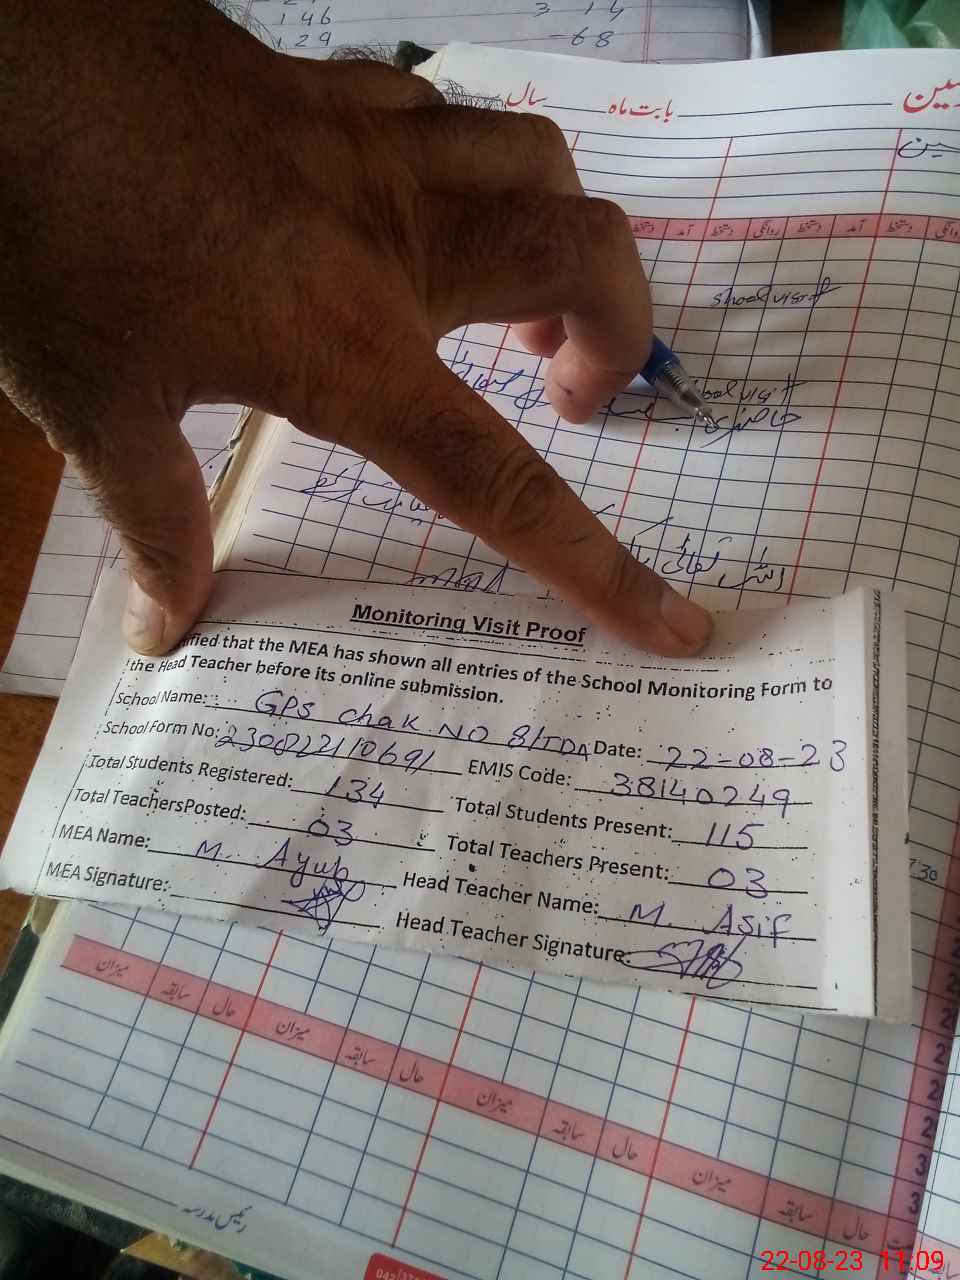 146
3 14
129
-68
سال بابت ماہ
دستخط آمد دستخط روانگی دستخط آمد دستخط روانگی
shool visit
visit
حاضری
اللہ تعالیٰ
Monitoring Visit Proof
ified that the MEA has shown all entries of the School Monitoring Form to
the Head Teacher before its online submission.
School Name: GPS chak NO 8/TDA Date: 22-08-23
School Form No: 23082211069/ EMIS Code: 38140249
Total Students Registered: 134 Total Students Present: 115
Total TeachersPosted: 03 Total Teachers Present: 03
MEA Name: M. Ayub Head Teacher Name: M. Asif
MEA Signature: Head Teacher Signature:
7.30
میزان سابقہ حال میزان سابقہ حال میزان سابقہ حال میزان سابقہ حال
رئیس مدرسہ
22-08-23 11:09